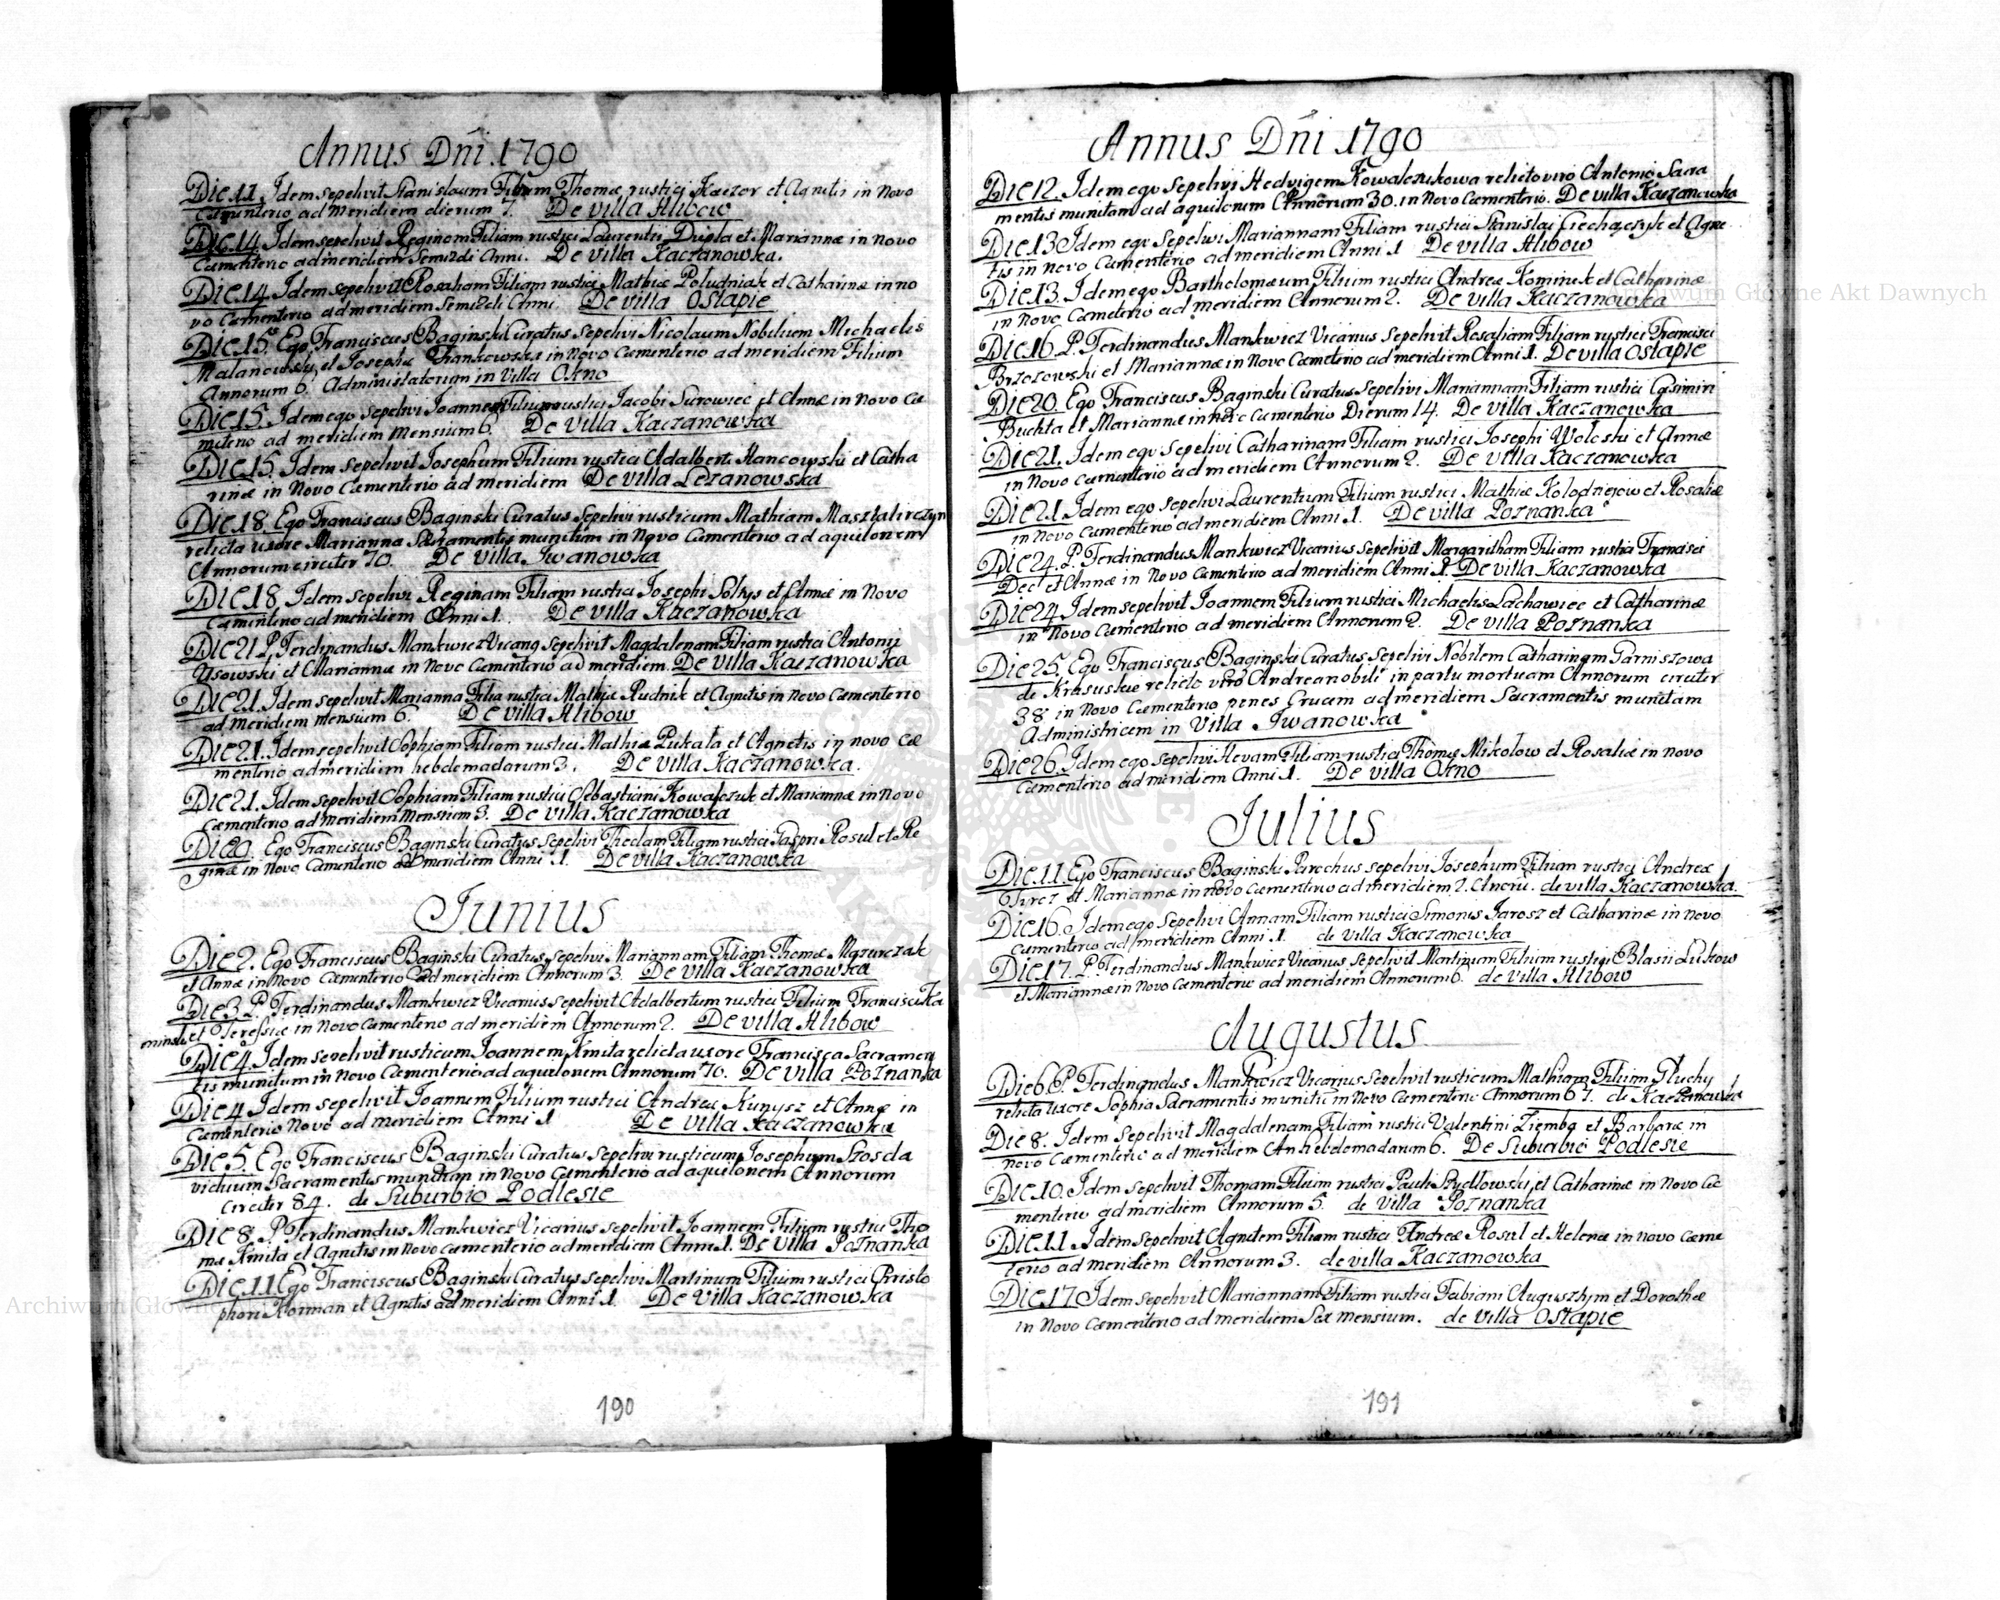 Annus Dñi 1790
Die 11. Idem sepelivit Stanislaum Filium Thomæ rustici Kaczor et Agnetis in Novo
Cæmenterio ad meridiem dierum 7. De villa Hlibow
Die 14. Idem sepelivit Reginam Filiam rustici Laurentii Dupla et Mariannæ in Novo
Cæmenterio ad meridiem Anni. De villa Kaczanowka.
Die 14. Idem sepelivit Rosaliam Filiam rustici Mathiæ Poludniak et Catharinæ in no
vo Cæmenterio ad meridiem Anni. De villa Ostapie
Die 15. Ego Franciscus Baginski Curatus Sepelivi Nicolaum Nobilium Michaelis
Malanowski et Josephæ Frankowska in Novo Cæmenterio ad meridiem Filium
Annorum 6. Administratorum in villa Okno
Die 15. Idem ego Sepelivi Joannem Filium rustici Jacobi Surowiec et Annæ in Novo Cæ
meterio ad meridiem Mensium 6. De villa Kaczanowka
Die 15. Idem sepelivit Josephum Filium rustici Adalberti Hancowski et Catha
rinæ in Novo Cæmenterio ad meridiem De villa Lezanowska
Die 18. Ego Franciscus Baginski Curatus Sepelivi rusticum Mathiam Masztalirczyn
relicta uxore Marianna Sacramentis munitum in Novo Cæmenterio ad aquilonem
Annorum circiter 70. De villa Iwanowka
Die 18. Idem sepelivi Reginam Filiam rustici Josephi Soltys et Annæ in Novo
Cæmenterio ad meridiem Anni 1. De villa Kaczanowka
Die 21 P. Ferdinandus Mankwicz Sepelivit Magdalenam Filiam rustici Antonii
Usowski et Mariannæ in Novo Cæmenterio ad meridiem. De villa Kaczanowka
Die 21. Idem sepelivit Marianna Filia rustici Mathiæ Rudnik et Agnetis in Novo Cæmenterio
ad meridiem mensium 6. De villa Hlibow
Die 21. Idem sepelivit Sophiam Filiam rustici Mathiæ Pukala et Agnetis in novo cæ
menterio ad meridiem hebdomadarum 3. De villa Kaczanowka.
Die 21. Idem sepelivit Sophiam Filiam rustici Sebastiani Kowalczuk et Mariannæ in Novo
Cæmenterio ad meridiem Mensium 3. De villa Kaczanowka
Ego Franciscus Baginski Curatus Sepelivi Theclam Filiam rustici Gaspri Rosul et Re
ginæ in Novo Cæmenterio ad meridiem Anni 1. De villa Kaczanowka
Junius
Die 2. Ego Franciscus Baginski Curatus sepelivi Mariannam Filiam Thomæ Mazurczak
et Annæ in Novo Cæmenterio ad meridiem Annorum 3. De villa Kaczanowka
Die 3 P. Ferdinandus Mankwicz Vicarius sepelivit Adalbertum rustici Filium Francisci Ka
minski et Teressiæ in Novo Cæmenterio ad meridiem Annorum 2. De villa Hlibow
Die 4. Idem sepelivit rusticum Joannem Kmita relicta uxore Francisca Sacramen
tis munitum in Novo Cæmenterio ad aquilonem Annorum 70. De villa Poznanka
Die 4 Idem sepelivit Joannem Filium rustici Andreæ Kunysz et Annæ in
Cæmenterio Novo ad meridiem Anni 1 De villa Kaczanowka
Die 5. Ego Franciscus Baginski Curatus Sepelivi rusticum Josephum Szosda
viduum Sacramentis munitum in Novo Cæmenterio ad aquilonem Annorum
circiter 84. de Suburbio Podlesie
Die 8. P. Ferdinandus Mankwicz Vicarius sepelivit Joannem Filium rustici Tho
mæ Kmita et Agnetis in Novo cæmenterio ad meridiem Anni 1. De villa Poznanka
Die 11 Ego Franciscus Baginski Curatus sepelivi Martinum Filium rustici Christo
phori Korman et Agnetis ad meridiem Anni 1. De villa Kaczanowka
190
Annus Dñi 1790
Die 12. Idem ego Sepelivi Hedvigem Kowalczukowa relicto viro Antonio Sacra
mentis munitam ad aquilonem Annorum 30. in Novo Cæmenterio. De villa Kaczanowka
Die 13 Idem ego Sepelivi Mariannam Filiam rustici Stanislai et Agne
tis in Novo Cæmenterio ad meridiem Anni 1 De villa Hlibow
Die 13. Idem ego Bartholomæum Filium rustici Andreæ Kominek et Catharinæ
in Novo Cæmeterio ad meridiem Annorum 2. De villa Kaczanowka
Die 16. P. Ferdinandus Mankwicz Vicarius sepelivit Rosaliam Filiam rustici Francisci
Brzozowski et Mariannæ in Novo Cæmeterio ad meridiem Anni 1. De villa Ostapie
Die 20. Ego Franciscus Baginski Curatus Sepelivi Mariannam Filiam rustici Casimiri
Buchta et Mariannæ in Novo Cæmenterio Dierum 14. De villa Kaczanowka
Die 21. Idem ego sepelivi Catharinam Filiam rustici Josephi Woloski et Annæ
in Novo Cæmenterio ad meridiem Annorum 2. De villa Kaczanowka
Die 21. Idem ego sepelivi Laurentium Filium rustici Mathiæ Kolodziejow et Rosaliæ
in Novo Cæmenterio ad meridiem Anni 1. De villa Poznanka
Die 24. P. Ferdinandus Mankwicz Vicarius sepelivit Margaritham Filiam rustici Francisci
Dec et Annæ in Novo Cæmenterio ad meridiem Anni 1. De villa Kaczanowka
Die 24 Idem sepelivit Joannem Filium rustici Michaelis Lachawiec et Catharinæ
in Novo Cæmenterio ad meridiem Annorum 2. De villa Poznanka
Die 25. Ego Franciscus Baginski Curatus Sepelivi Nobilem Catharinam Parniszowa
de Krasuskie relicto viro Andrea nobili in partu mortuam Annorum circiter
38 in Novo Cæmenterio penes Crucem ad meridiem Sacramentis munitam
Administricem in Villa Iwanowka
Die 26. Idem ego sepelivi Hevam Filiam rustici Thomæ Mikolow et Rosaliæ in Novo
Cæmenterio ad meridiem Anni 1. De villa Okno
Julius
Die 11. Ego Franciscus Baginski Parochus sepelivi Josephum Filium rustici Andreæ
Girez et Mariannæ in Novo Cæmenterio ad meridiem 2. de villa Kaczanowka.
Die 16. Idem ego sepelivi Annam Filiam rustici Simonis Jarosz et Catharinæ in Novo
Cæmenterio ad meridiem Anni 1. de villa Kaczanowka
Die 17. P. Ferdinandus Mankwicz Vicarius sepelivit Martinum Filium rustici Blasii Lukow
et Mariannæ in Novo Cæmenterio ad meridiem Annorum 6. de villa Hlibow
Augustus
Die 6 P. Ferdinandus Mankwicz Vicarius sepelivit rusticum Mathiam Filium Gluchy
relicta uxore Sophia Sacramentis munitis in Novo Cæmenterio Annorum 67. de Kaczanowka
Die 8. Idem Sepelivit Magdalenam Filiam rustici Valentini Ziemba et Barbaræ in
novo Cæmenterio ad meridiem hebdomadarum 6. De Suburbio Podlesie
Die 10. Idem sepelivit Thomam Filium rustici Pauli Rydlowski et Catharinæ in Novo Cæ
menterio ad meridiem Annorum 5. de villa Poznanka
Die 11. Idem sepelivit Agnetem Filiam rustici Andreæ Rosul et Helenæ in Novo Cæme
terio ad meridiem Annorum 3. de villa Kaczanowka
Die 17 Idem sepelivit Mariannam Filiam rustici Fabiani Auguszhyn et Dorotheæ
in Novo Cæmenterio ad meridiem Sex mensium. de villa Ostapie
191
Archiwum Główne Akt Dawnych
Archiwum Główne